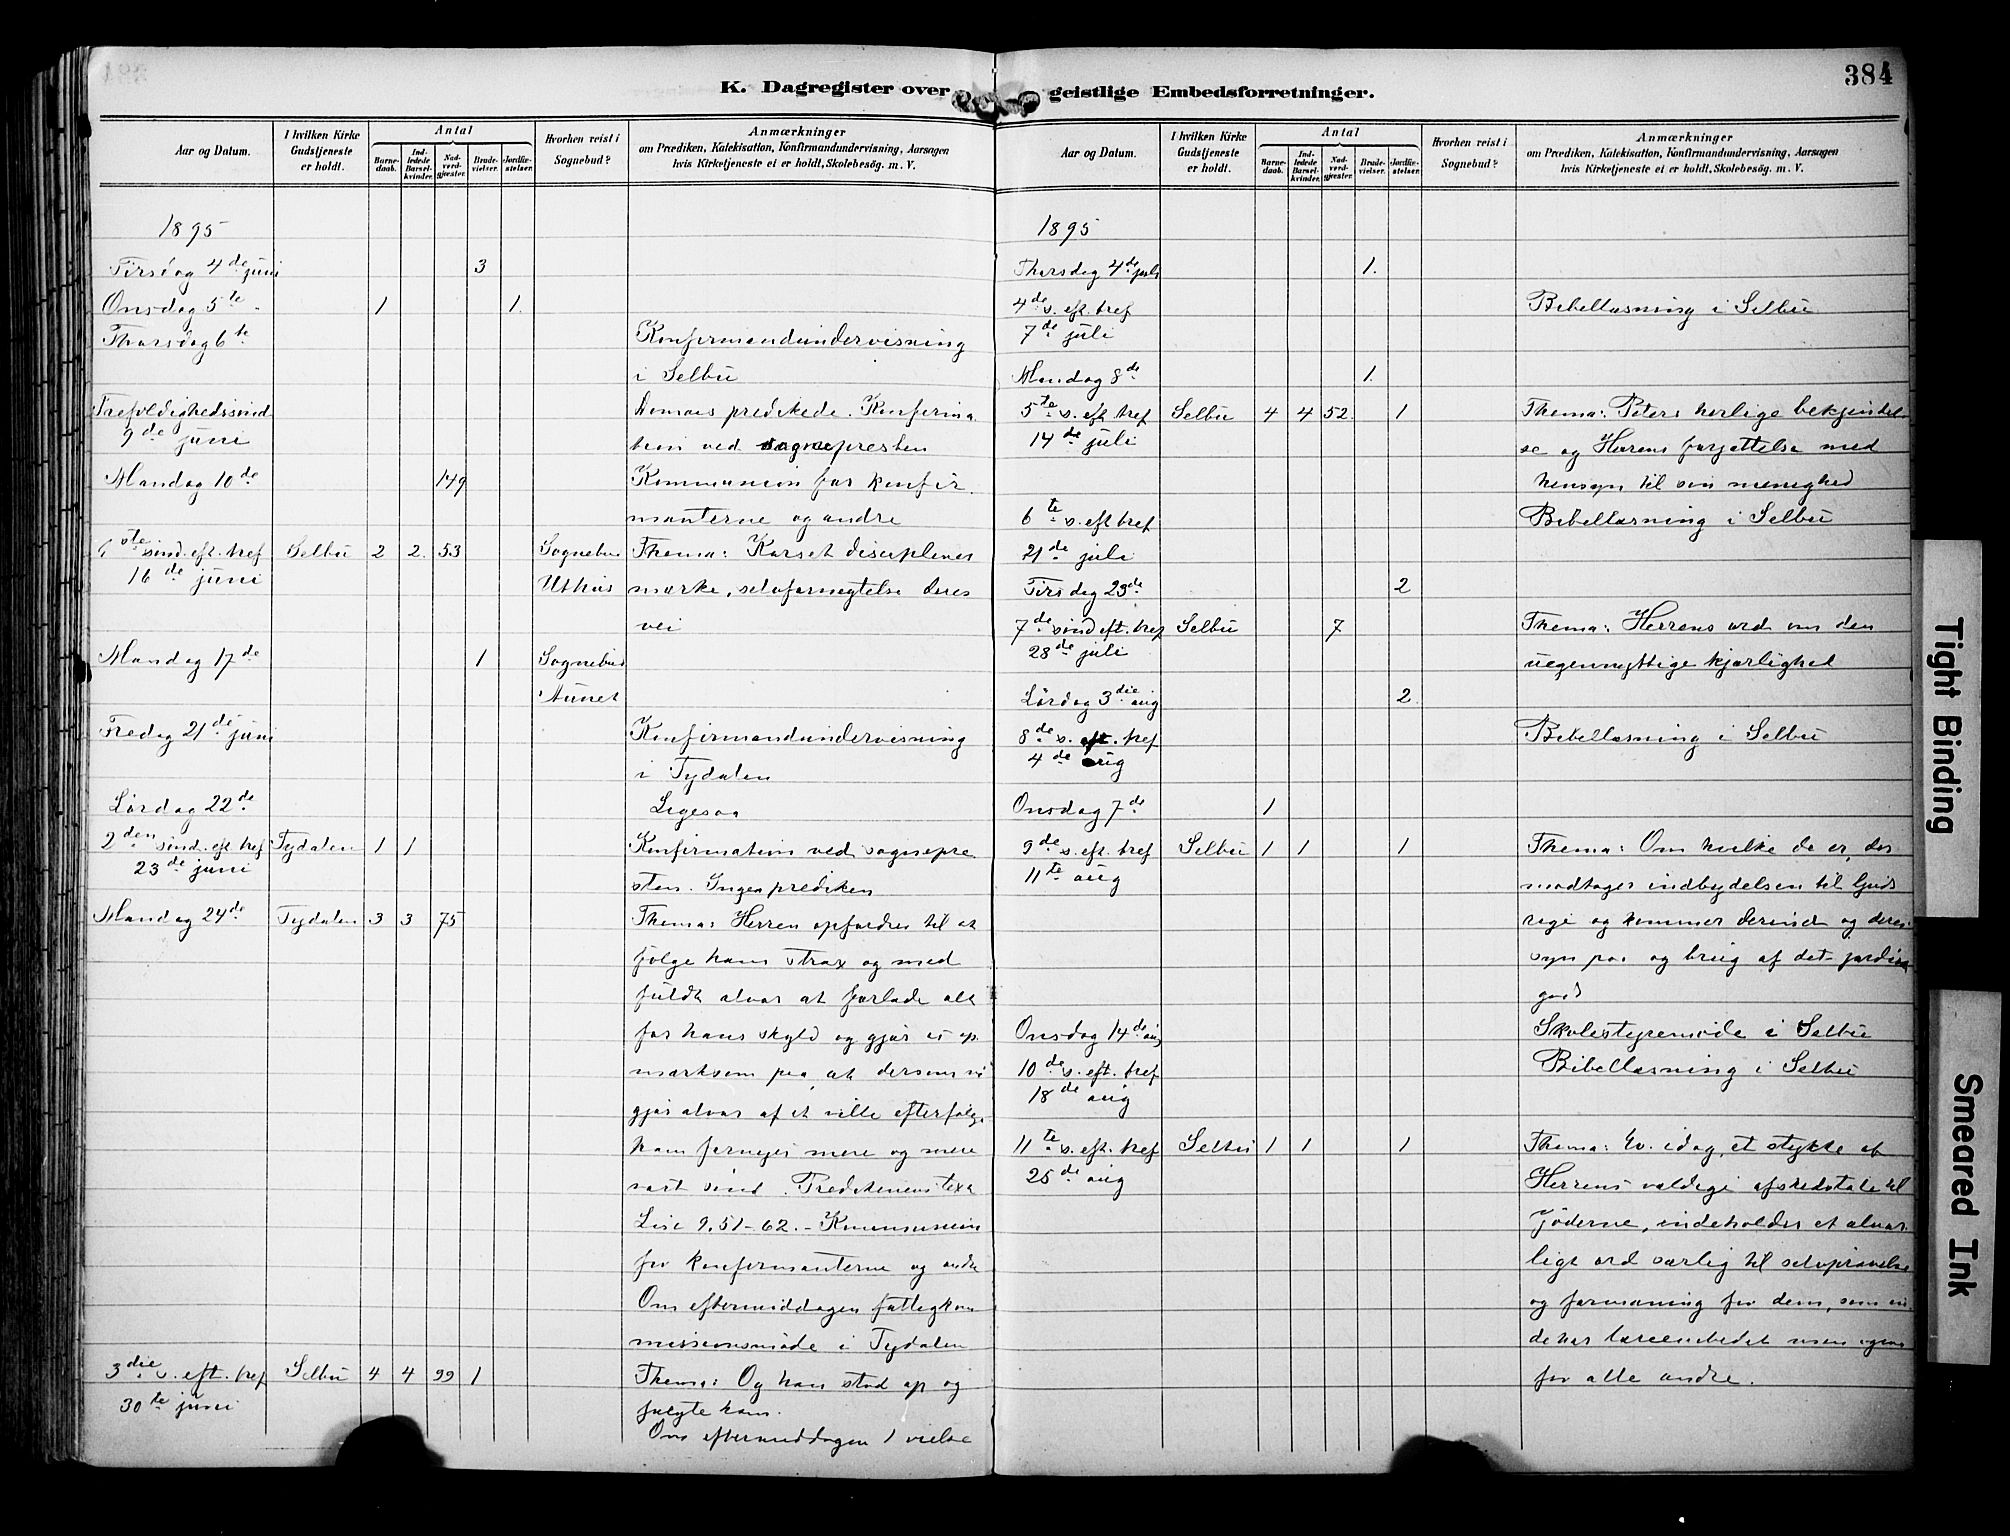 384
K. Dagregister over geistlige Embedsforretninger.
Aar og Datum.
I hvilken Kirke Gudstjeneste er holdt.
Antal
Barnedaab.
Indledede Barselkvinder.
Nadverdgjæster.
Brudevielser.
Jordfæstelser.
Hvorhen reist i Sognebud?
Anmærkninger
om Prædiken, Katekisation, Konfirmandundervisning, Aarsagen
hvis Kirketjeneste ei er holdt, Skolebesøg. m. V.
1895
Tirsdag 4de juni 3
Onsdag 5te 1 1.
Thorsdag 6te Konfirmandundervisning
i Selbu
Trefoldighedssønd prædikede. Konfirma
9de juni tion ved sognepresten
Mandag 10de 149 Kommunion for konfir
manterne og andre
1ste sønd. eft. tref Selbu 2 2. 53 Sognebud Thema: Korset disciplenes
16de juni Uthus mærke, selvfornegtelse deres
vei
Mandag 17de 1 Sognebud
Aunet
Fredag 21de juni Konfirmandundervisning
i Tydalen
Lørdag 22de Ligesaa
2den sønd. eft tref Tydalen 1 1 Konfirmation ved sognepre
23de juni sten. Ingen prediken
Mandag 24de Tydalen 3 3 75 Thema: Herren opfordrer til at
følge ham strax og med
fuldt alvor at forlade alt
for hans skyld og gjør os op
mærksom paa, at dersom vi
gjør alvor af at ville efterfølge
ham fornyes mere og mere
vort sind. Predikenens text
Luc 9,51-62. - Kommunion
for konfirmanterne og andre
Om eftermiddagen fattigkom
missionsmøde i Tydalen
3die s. eft. tref Selbu 4 4 99 1 Thema: Og han stod op og
30te juni fulgte ham.
Om eftermiddagen 1 vielse
Aar og Datum.
I hvilken Kirke Gudstjeneste er holdt.
Antal
Barnedaab.
Indledede Barselkvinder.
Nadverdgjæster.
Brudevielser.
Jordfæstelser.
Hvorhen reist i Sognebud?
Anmærkninger
om Prædiken, Katekisation, Konfirmandundervisning, Aarsagen
hvis Kirketjeneste ei er holdt, Skolebesøg. m. V.
1895
Thorsdag 4de juli 1.
4de s. eft. tref Bibellæsning i Selbu
7de juli
Mandag 8de 1.
5te s. eft tref Selbu 4 4 52 1 Thema: Peters herlige bekjendel
14de juli se og Herrens forjættelse med
hensyn til sin menighed
6te s. eft tref Bibellæsning i Selbu
21de juli
Tirsdag 23de 2
7de sønd eft. tref Selbu 7 Thema: Herrens ord om den
28de juli uegennyttige kjærlighed
Lørdag 3die aug 2.
8de s. eft. tref Bibellæsning i Selbu
4de aug
Onsdag 7de 1
9de s. eft. tref Selbu 1 1 1 Thema: Om hvilke de er, der
11te aug modtager indbydelsen til Guds
rige og kommer derind og deres
syn paa og brug af det jordiske
gods
Onsdag 14de aug Skolestyremøde i Selbu
10de s. eft. tref Bibellæsning i Selbu
18de aug
11te s. eft. tref Selbu 1 1 1 Thema: Ev. idag, et stykke af
25de aug Herrens vældige afskedstale til
Jøderne, indeholder et alvor
ligt ord særlig til selvprøvelse
og formaning for dem, som
de har læreembedet men ogsaa
for alle andre.
Tight Binding
Smeared Ink